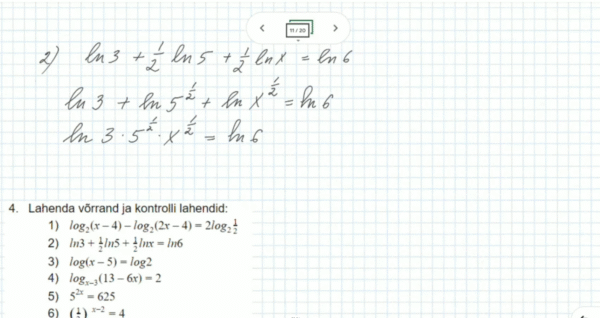 11 / 20
2) ln 3 + 1/2 ln 5 + 1/2 ln x = ln 6
ln 3 + ln 5^(1/2) + ln x^(1/2) = ln 6
ln 3 · 5^(1/2) · x^(1/2) = ln 6
4. Lahenda võrrand ja kontrolli lahendid:
1) log₂(x − 4) − log₂(2x − 4) = 2log₂ 1/2
2) ln3 + 1/2 ln5 + 1/2 lnx = ln6
3) log(x − 5) = log2
4) logₓ₋₃(13 − 6x) = 2
5) 5^(2x) = 625